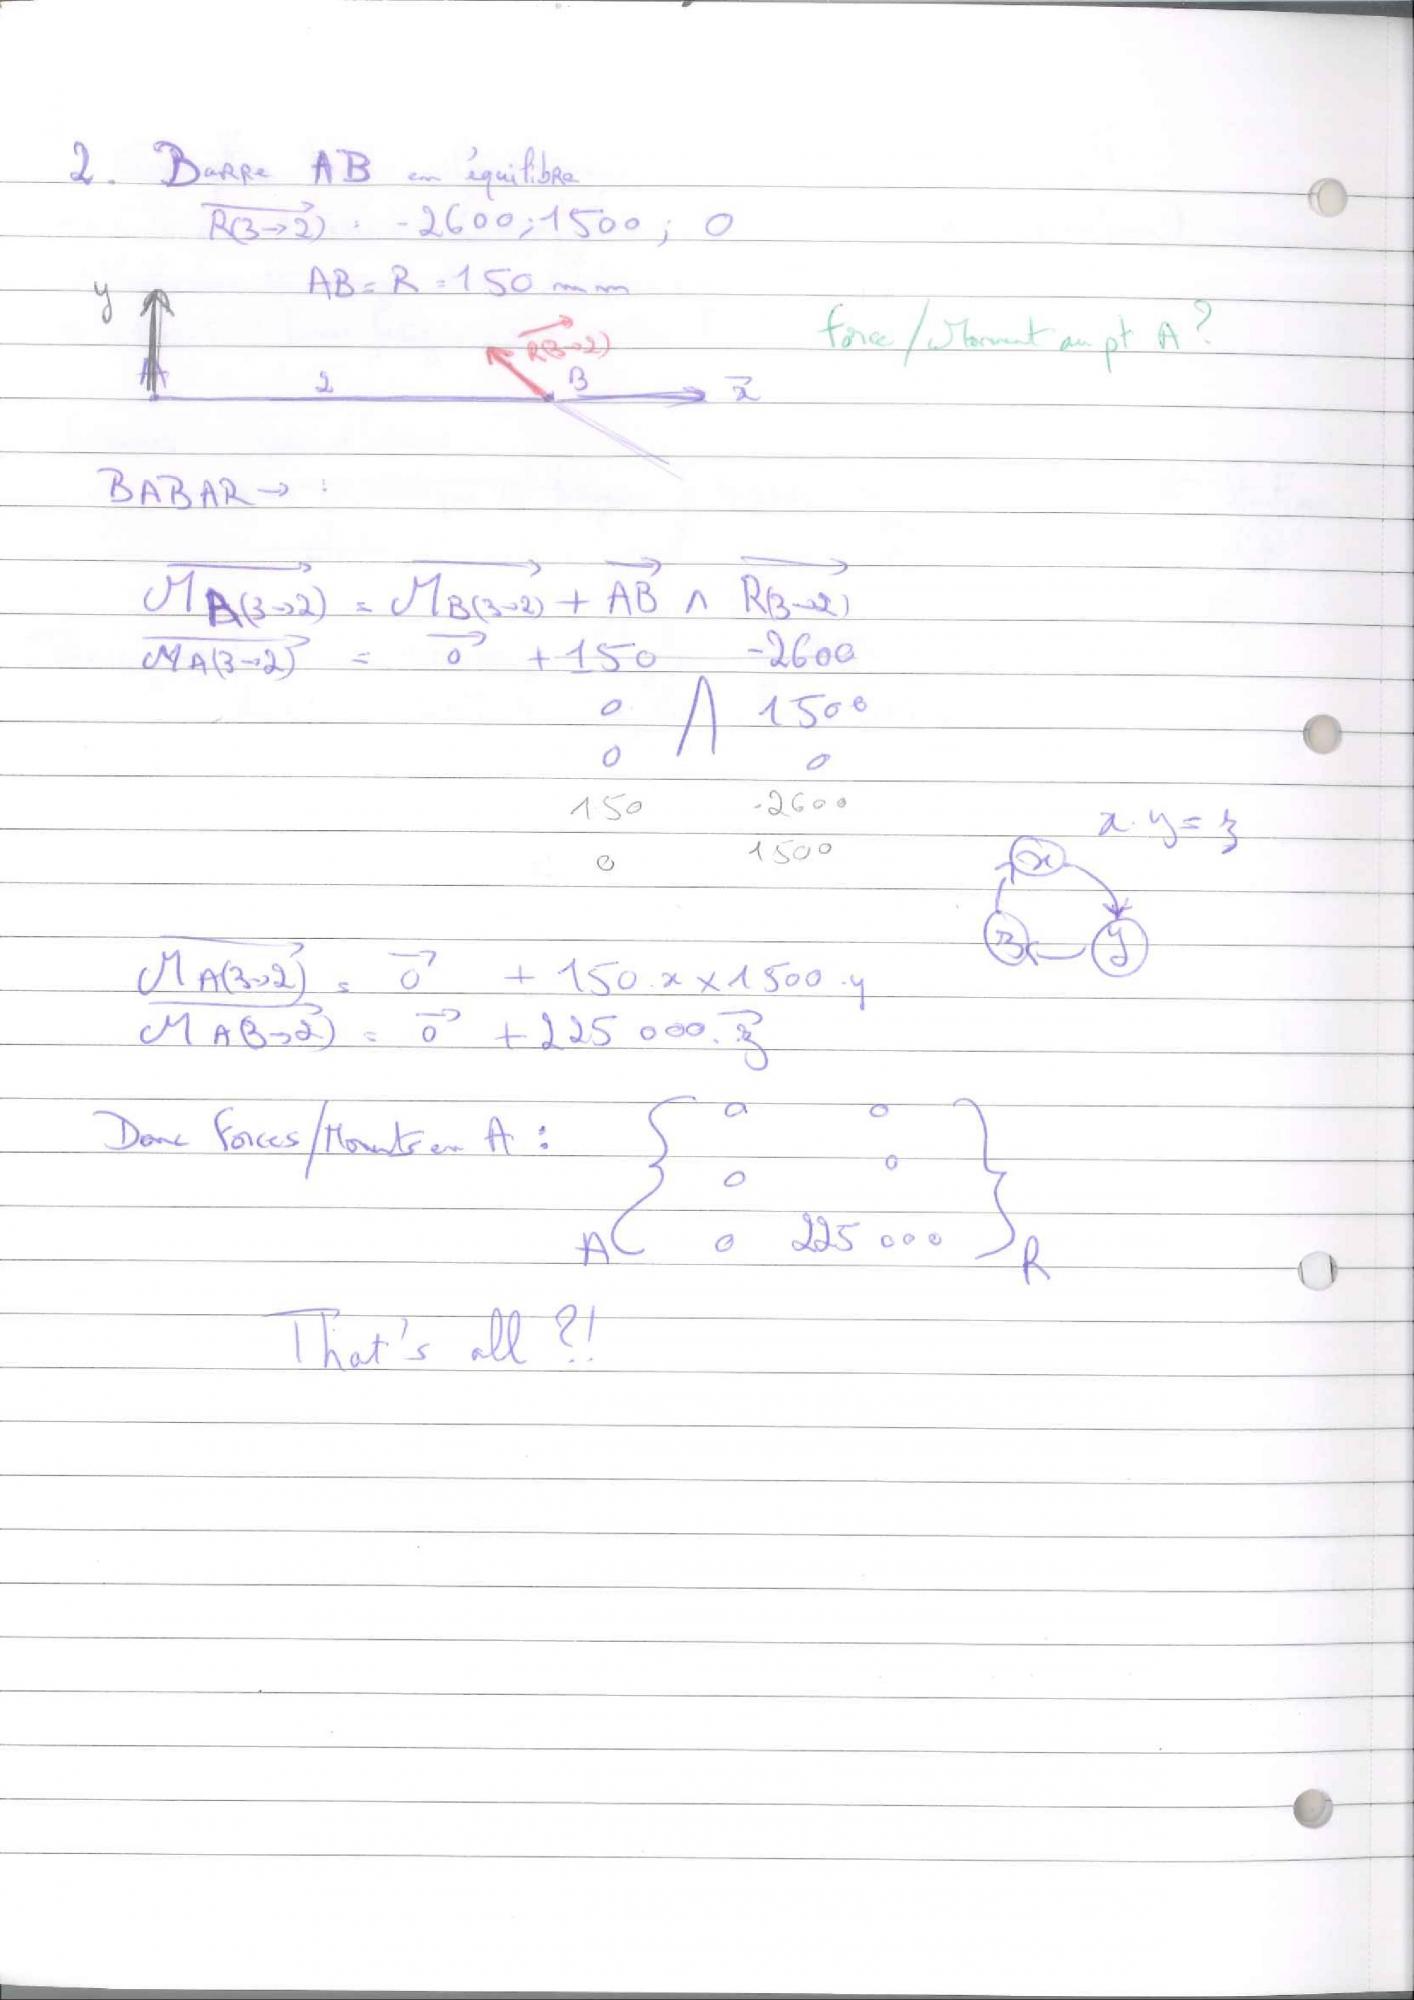 2. Barre AB en équilibre
R(3→2) : -2600; 1500; 0
AB = R = 150 mm
y
Force/Moment au pt A ?
R(3→2)
A 2 B x
BABAR → :
MA(3→2) = MB(3→2) + AB ∧ R(3→2)
MA(3→2) = 0 + 150 -2600
0 ∧ 1500
0 0
150 -2600
0 1500
x . y = z
x
z y
MA(3→2) = 0 + 150.x × 1500.y
MA(3→2) = 0 + 225 000.z
Donc Forces/Moments en A : { 0 0 }
0 0
A 0 225 000 R
That's all ?!